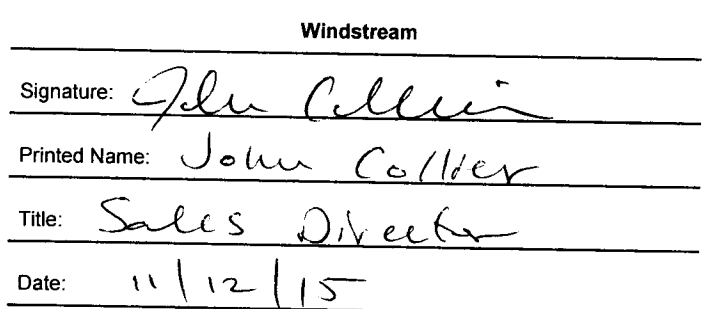 Windstream
Signature: John Collier
Printed Name: John Collier
Title: Sales Director
Date: 11/12/15